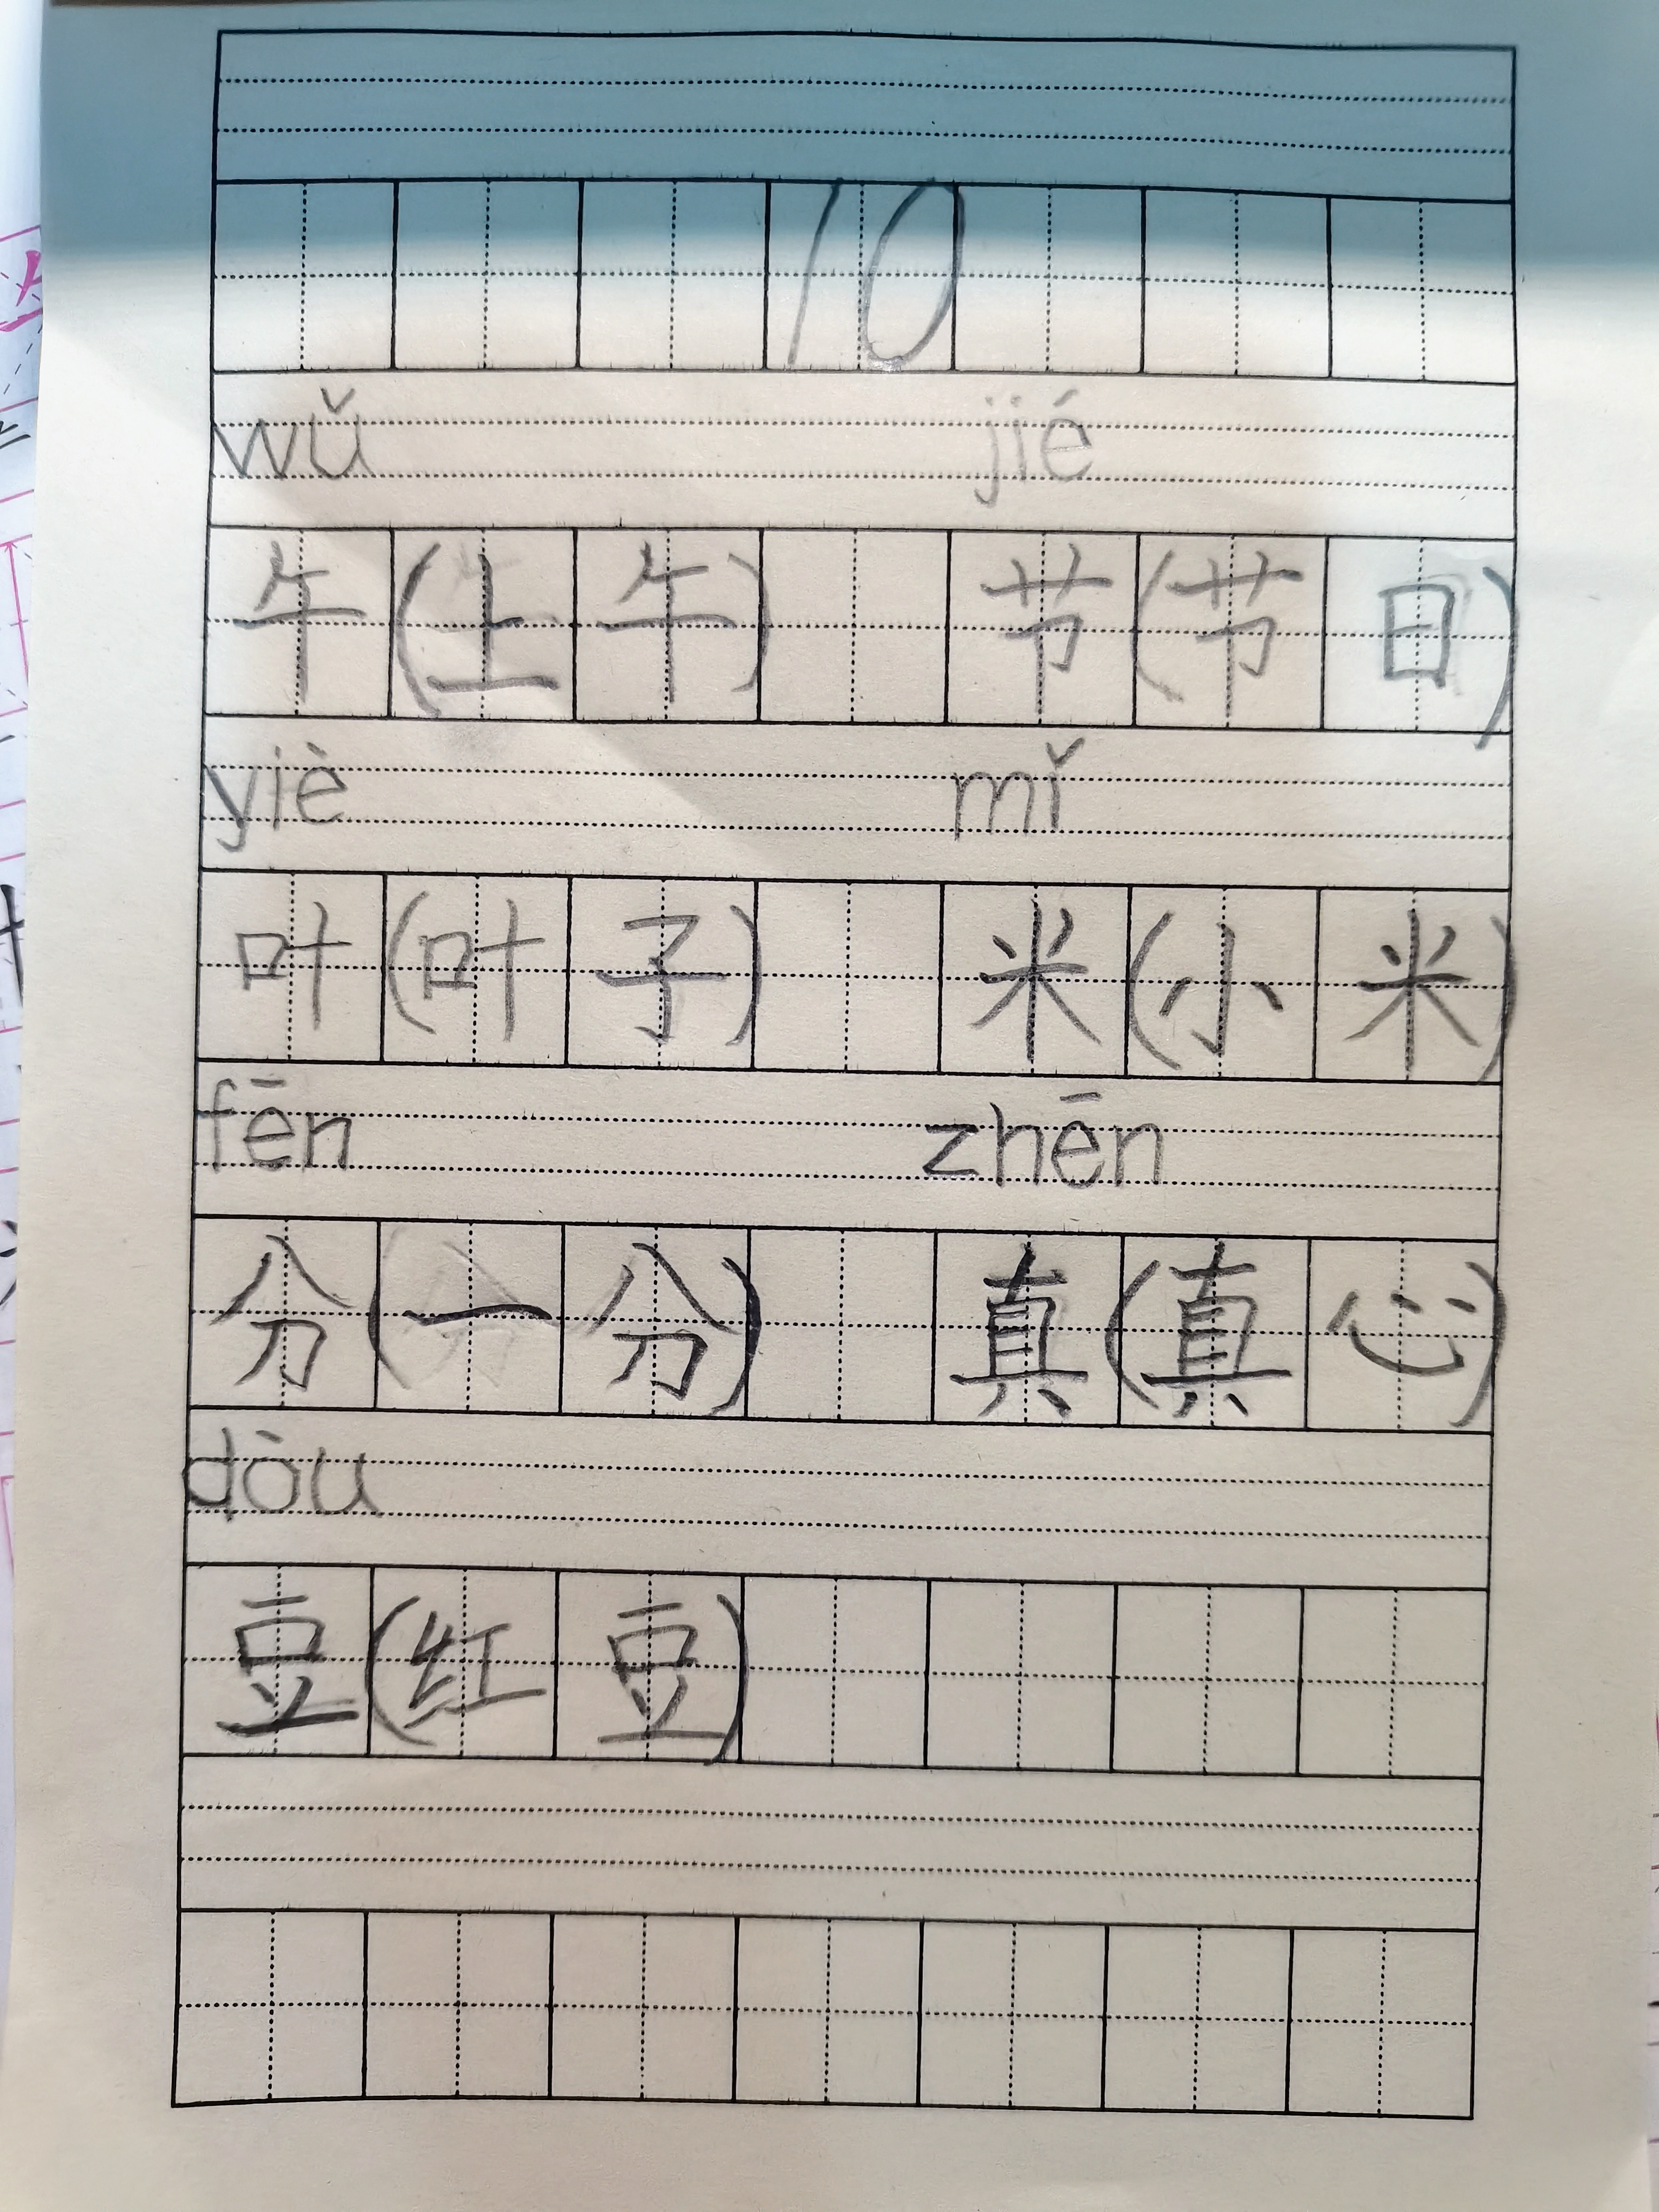 10
wǔ jié
午(上午) 节(节日)
yiè mǐ
叶(叶子) 米(小米)
fēn zhēn
分(一分) 真(真心)
dòu
豆(红豆)